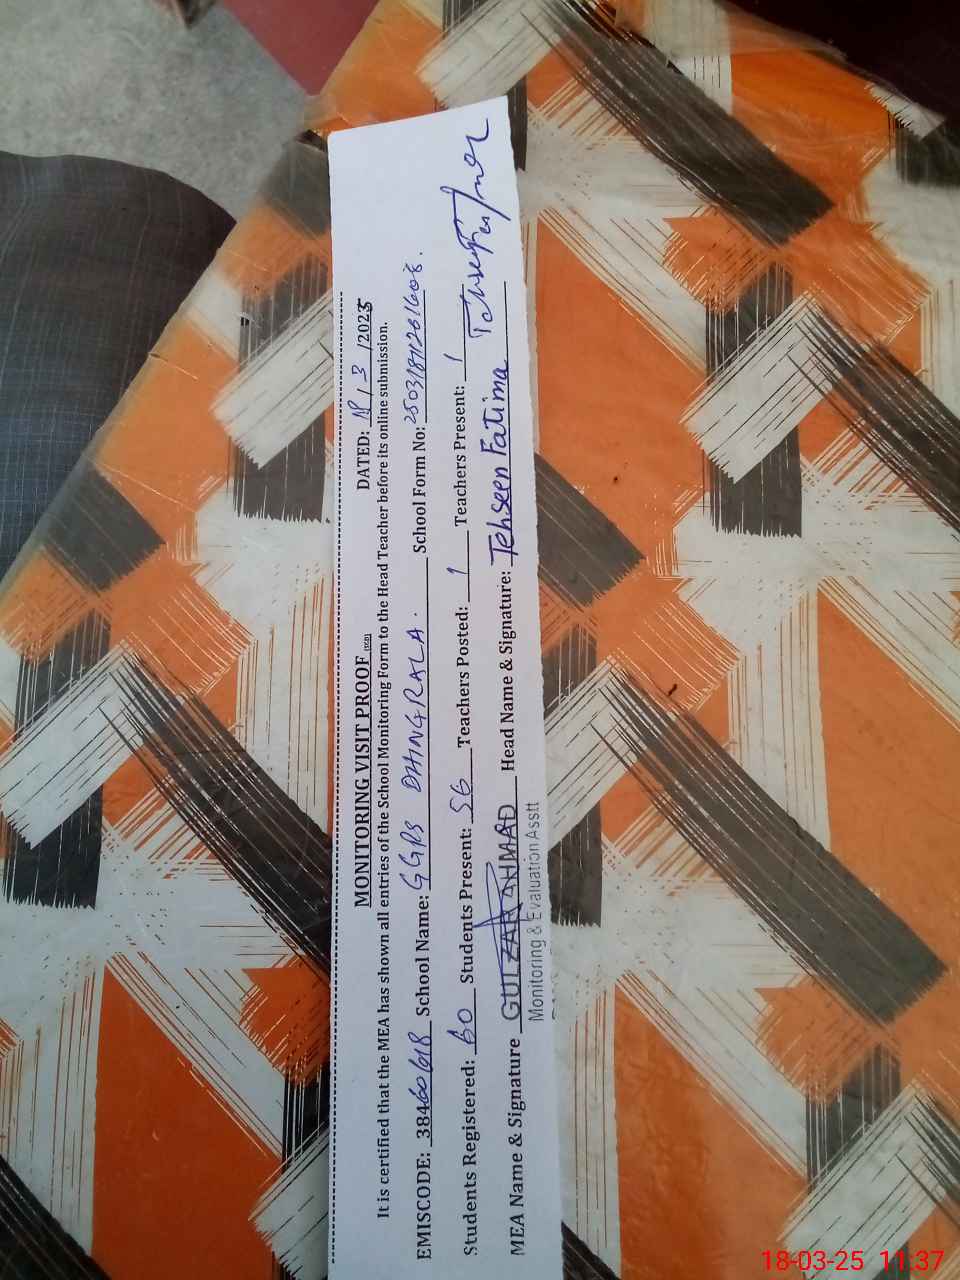 MONITORING VISIT PROOF DATED: 18/3/2025
It is certified that the MEA has shown all entries of the School Monitoring Form to the Head Teacher before its online submission.
EMISCODE: 38460618 School Name: GGPS DHINGRALA. School Form No:
Students Registered: 60 Students Present: 56 Teachers Posted: 1 Teachers Present: 1
MEA Name & Signature GULZAR AHMAD Head Name & Signature: Tehseen Fatima
Monitoring & Evaluation Asstt
18-03-25 11:37